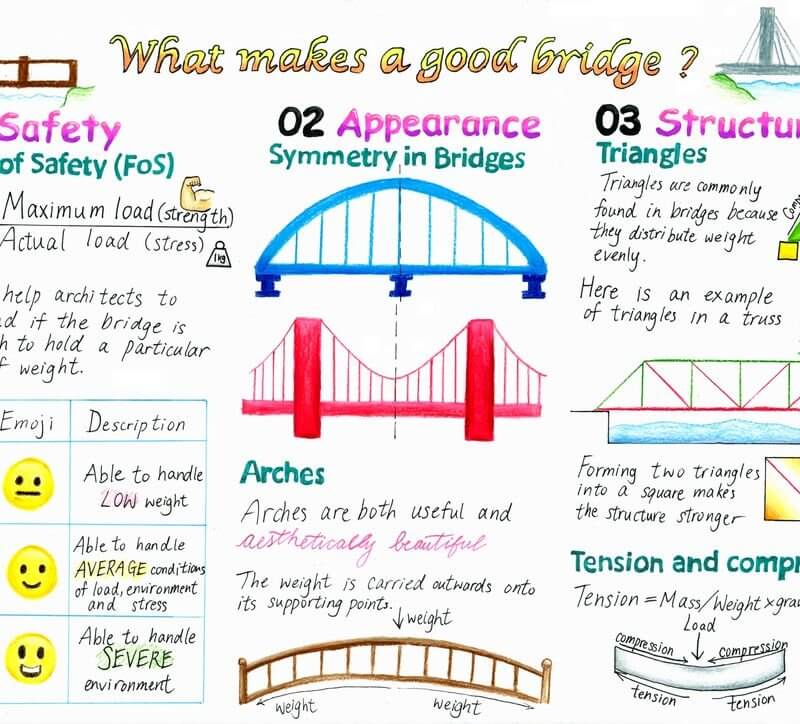 What makes a good bridge ?
Safety
of Safety (FoS)
Maximum load (strength)
Actual load (stress)
1kg
help architects to
if the bridge is
to hold a particular
weight.
Emoji Description
Able to handle
LOW weight
Able to handle
AVERAGE conditions
of load, environment
and stress
Able to handle
SEVERE
environment
02 Appearance
Symmetry in Bridges
Arches
Arches are both useful and
aesthetically beautiful
The weight is carried outwards onto
its supporting points.
weight
weight weight
03 Structu
Triangles
Triangles are commonly
found in bridges because
they distribute weight
evenly.
Here is an example
of triangles in a truss
Forming two triangles
into a square makes
the structure stronger
Tension and compr
Tension = Mass/Weight x gra
Load
compression compression
tension tension